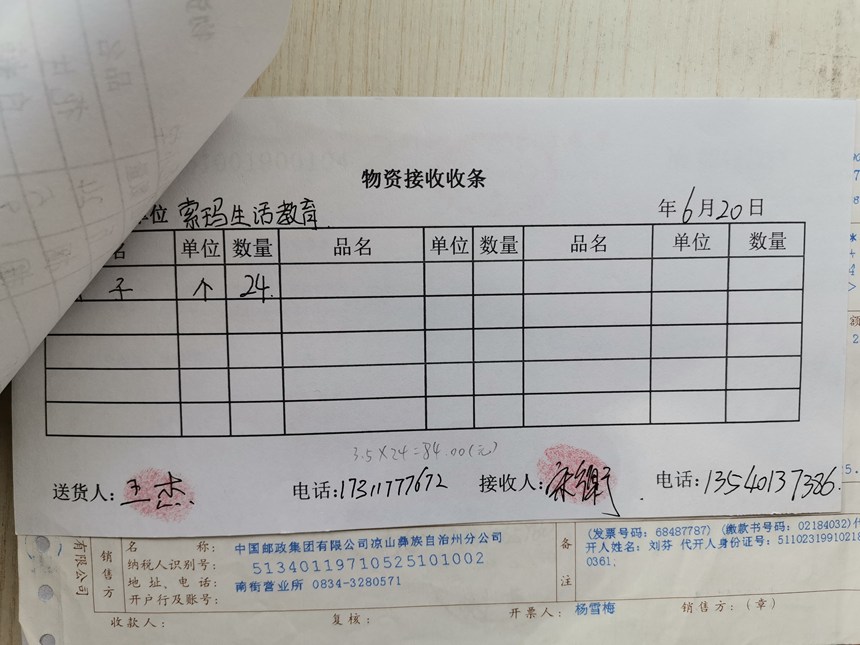 物资接收收条
位 索玛生活教育 年6月20日
名 单位 数量 品名 单位 数量 品名 单位 数量
子 个 24
3.5×24=84.00(元)
送货人: 王杰 电话:17311777672 接收人: 电话:13540137386
有限公司
销售方
名 称: 中国邮政集团有限公司凉山彝族自治州分公司
纳税人识别号: 513401197105251010​02
地址、电话: 南街营业所 0834-3280571
开户行及账号:
备注
(发票号码: 68487787) (缴款书号码: 02184032)代
开人姓名: 刘芬 代开人身份证号: 51102319910218
0361,
收款人: 复核: 开票人: 杨雪梅 销售方:(章)